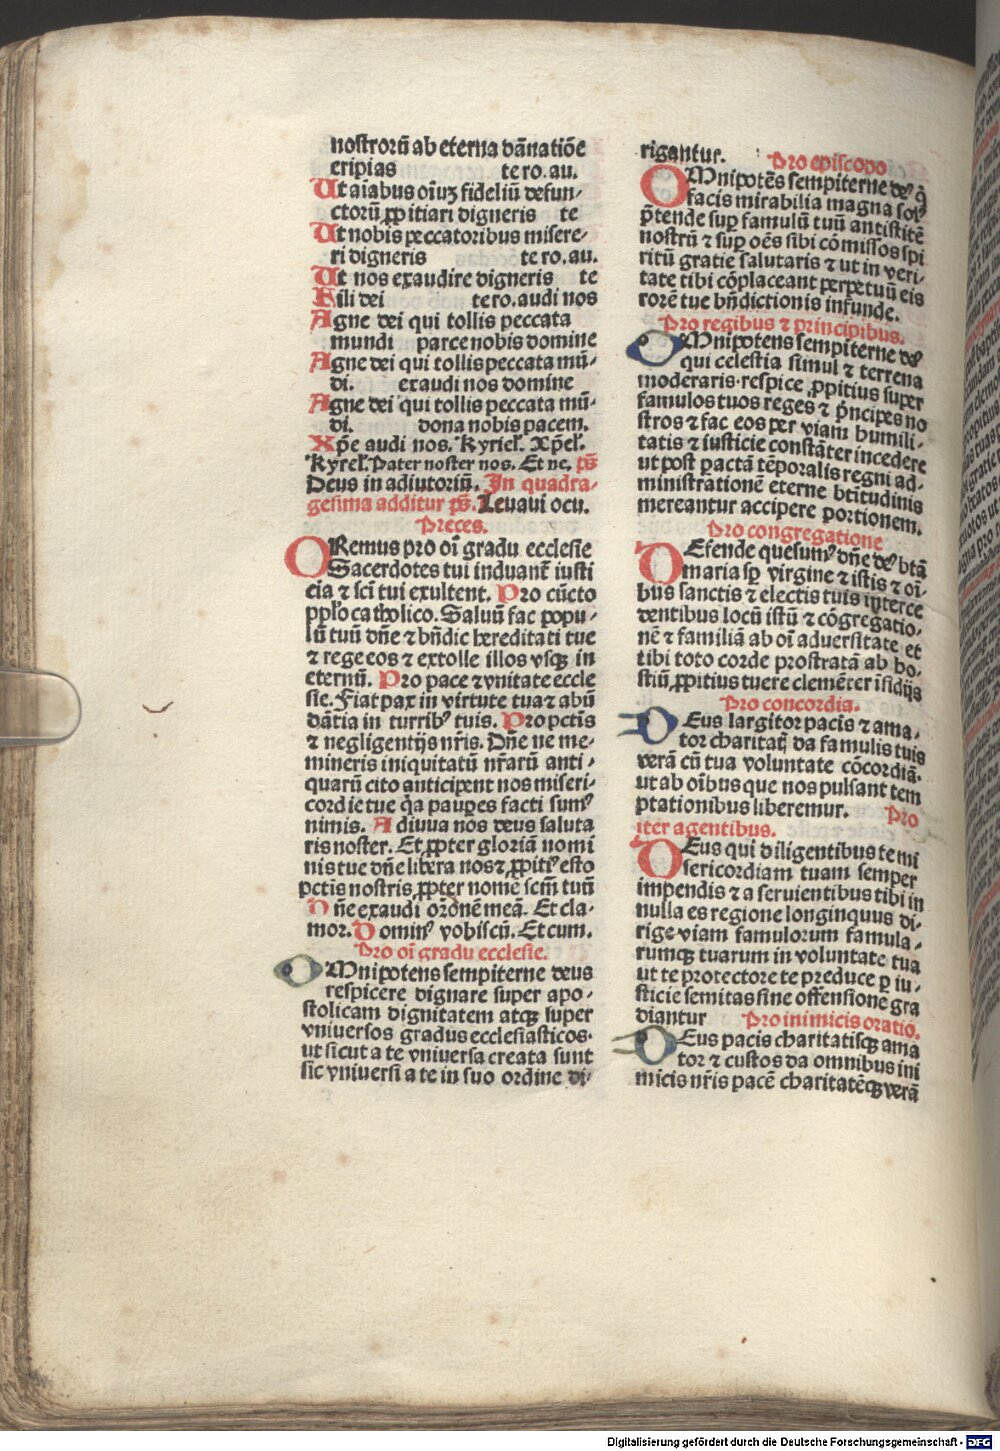 nostrorū ab eterna dānatiōe
eripias te ro. au.
Ut aīabus oīuꝫ fideliū defun-
ctorū ꝓpitiari digneris te
Ut nobis peccatoribus misere-
ri digneris te ro. au.
Ut nos exaudire digneris te
Fili dei te ro. audi nos
Agne dei qui tollis peccata
mundi parce nobis domine
Agne dei qui tollis peccata mū-
di. exaudi nos domine
Agne dei qui tollis peccata mū-
di. dona nobis pacem.
Xp̄e audi nos. Kyriel̄. Xp̄el̄.
Kyrel̄. Pater noster nos. Et ne. ps̄
Deus in adiutoriū. In quadra-
gesima additur ps̄. Leuaui ocu.
Preces.
ORemus pro oī gradu ecclesie
Sacerdotes tui induant̄ iusti
cia ⁊ sc̄i tui exultent. Pro cūcto
pplo catholico. Saluū fac popu-
lū tuū dn̄e ⁊ bn̄dic hereditati tue
⁊ rege eos ⁊ extolle illos vsqꝫ in
eternū. Pro pace ⁊ vnitate eccle
sie. Fiat pax in virtute tua ⁊ abū
dātia in turribꝰ tuis. Pro pctīs
⁊ negligentijs nr̄is. Dn̄e ne me-
mineris iniquitatū nr̄arū anti-
quarū cito anticipent nos miseri-
cordie tue q̄a pauꝑes facti sumꝰ
nimis. Adiuua nos deus saluta
ris noster. Et ꝓpter gloriā nomi
nis tue dn̄e libera nos ⁊ ꝓpitiꝰ esto
pctīs nostris ꝓpter nomē scm̄ tuū
Dn̄e exaudi orōnē meā. Et cla-
mor. Dominꝰ vobiscū. Et cum.
Pro oī gradu ecclesie.
OMnipotens sempiterne deus
respicere dignare super apo-
stolicam dignitatem atqꝫ super
vniuersos gradus ecclesiasticos.
ut sicut a te vniuersa creata sunt
sic vniuersi a te in suo ordine di-
rigantur. Pro episcopo
OMnipotēs sempiterne deꝰ q̄
facis mirabilia magna solꝰ
p̄tende suꝑ famulū tuū antistitē
nostrū ⁊ suꝑ oēs sibi cōmissos spi
ritū gratie salutaris ⁊ ut in veri-
tate tibi cōplaceant perpetuū eis
rorē tue bn̄dictionis infunde.
Pro regibus ⁊ principibus.
OMnipotens sempiterne deꝰ
qui celestia simul ⁊ terrena
moderaris. respice ꝓpitius super
famulos tuos reges ⁊ p̄ncipes no
stros ⁊ fac eos per viam humili-
tatis ⁊ iusticie constāter incedere
ut post ꝑactā tēporalis regni ad-
ministrationē eterne btītudinis
mereantur accipere portionem.
Pro congregatione
DEfende quesumꝰ dn̄e deꝰ btā
maria sꝑ virgine ⁊ istis ⁊ oī-
bus sanctis ⁊ electis tuis interce
dentibus locū istū ⁊ cōgregatio-
nē ⁊ familiā ab oī aduersitate et
tibi toto corde prostratā ab ho-
stiū ꝓpitius tuere clemēter īsidijs
Pro concordia.
DEus largitor pacis ⁊ ama-
tor charitatꝭ da famulis tuis
verā cū tua voluntate cōcordiā.
ut ab oībus que nos pulsant tem
ptationibus liberemur. Pro
iter agentibus.
DEus qui diligentibus te mi
sericordiam tuam semper
impendis ⁊ a seruientibus tibi in
nulla es regione longinquus di-
rige viam famulorum famula-
rumqꝫ tuarum in voluntate tua
ut te protectore te preduce ꝑ iu-
sticie semitas sine offensione gra
diantur Pro inimicis oratio.
DEus pacis charitatisqꝫ ama
tor ⁊ custos da omnibus ini
micis nr̄is pacē charitatēqꝫ verā
Digitalisierung gefördert durch die Deutsche Forschungsgemeinschaft - DFG